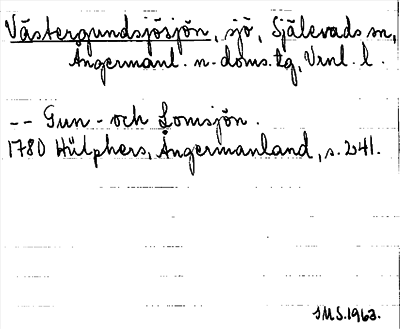 Västergundsjösjön, sjö, Själevads sn,
Ångermanl. n. doms. tg, Vrnl. l.
-- Gun- och Lomsjön.
1780 Hülphers, Ångermanland, s. 241.
SMS. 1963.